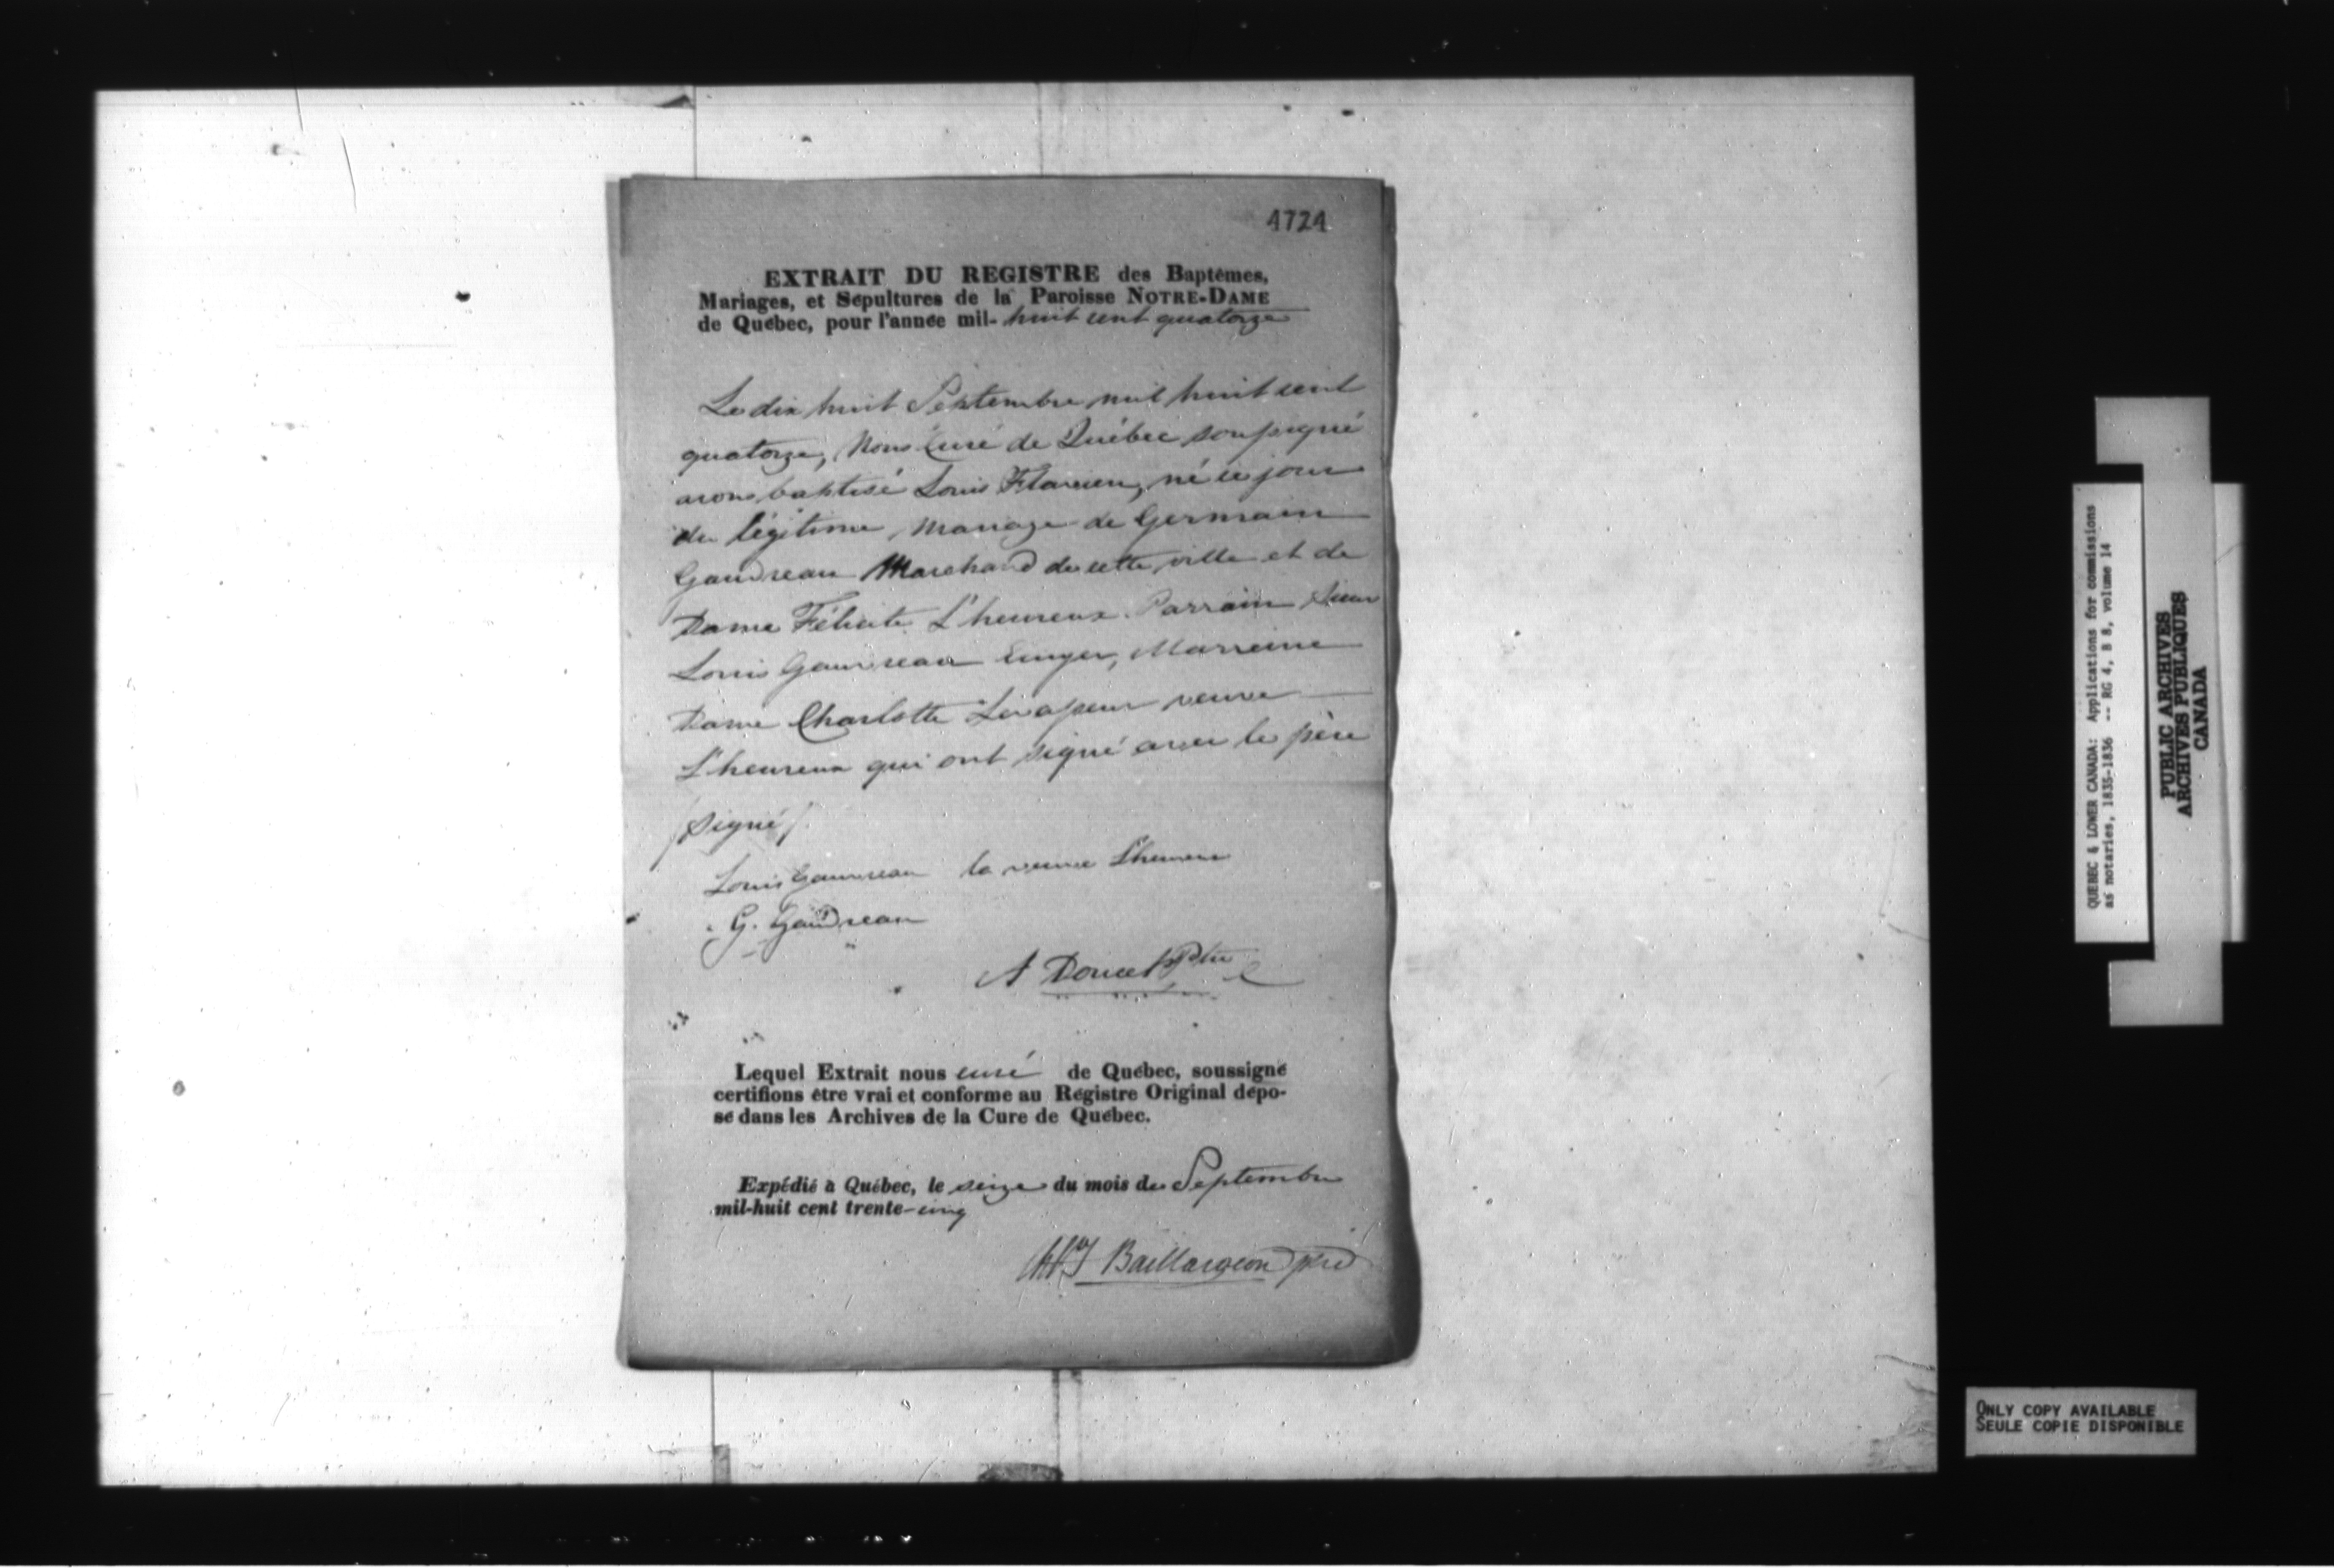 4724
EXTRAIT DU REGISTRE des Baptêmes,
Mariages, et Sépultures de la Paroisse NOTRE-DAME
de Québec, pour l'année mil- huit cent quatorze
Le dix huit Septembre mil huit cent
quatorze, Nous Curé de Québec soussigné
avons baptisé Louis Flavien, né ce jour
du légitime mariage de Germain
Gaudreau Marchand de cette ville et de
Dame Félicité L'heureux. Parrain Sieur
Louis Gauvreau Ecuyer, Marreine
Dame Charlotte Levasseur veuve
L'heureux qui ont signé avec le père
/signé/
Louis Gauvreau la veuve L'heureux
G. Gaudreau
A Doucet Ptre
Lequel Extrait nous curé de Québec, soussigné
certifions être vrai et conforme au Régistre Original dépo-
sé dans les Archives de la Cure de Québec.
Expédié à Québec, le seize du mois de Septembre
mil-huit cent trente-cinq
Baillargeon ptre
QUEBEC & LOWER CANADA: Applications for commissions
as notaries, 1835-1836 -- RG 4, B 8, volume 14
PUBLIC ARCHIVES
ARCHIVES PUBLIQUES
CANADA
ONLY COPY AVAILABLE
SEULE COPIE DISPONIBLE